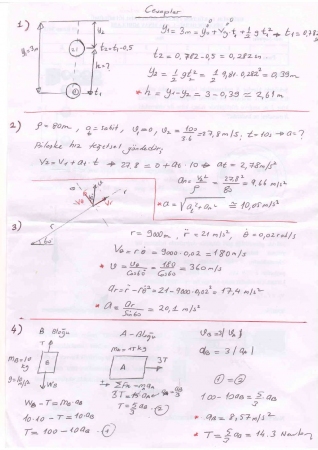 Cevaplar
1)
y₁=3m
y₂
②
t₂=t₁-0,5
h=?
①
t₁
y₁=3m=y₀+v₀.t₁+½gt₁² → t₁=0,782
t₂=0,782-0,5=0,282sn
y₂=½gt₂²=½.9,81.0,282²=0,39m
* h=y₁-y₂=3-0,39=2,61m
2) ρ=80m, aₜ=sabit, v₁=0, v₂=100/3.6=27,8m/s, t=10s → a=?
v₂=v₁+aₜ.t → 27,8=0+aₜ.10 → aₜ=2,78m/s²
aₙ=v₂²/ρ=27,8²/80=9,66 m/s²
* a=√aₜ²+aₙ² ≅ 10,05m/s²
3)
r
r=9000m, r̈=21m/s², θ̇=0,02rad/s
vθ=rθ̇=9000.0,02=180m/s
* v=vθ/cos60=180/cos60=360m/s
ar=r̈-rθ̇²=21-9000.0,02²=17,4m/s²
* a=ar/sin60=20,1 m/s²
4)
B Bloğu
T
mB=10kg
B
g=10m/s²
WB
WB-T=mB.aB
10.10-T=10.aB
T=100-10aB ①
A-Bloğu
mA=15kg
A
3T
ΣFx=mAaA
3T=15.aA=15.aB/3
T=5/3 aB ②
vB=3|vA|
aB=3|aA|
①=②
100-10aB=5/3 aB
* aB=8,57m/s²
* T=5/3 aB=14.3 Newton